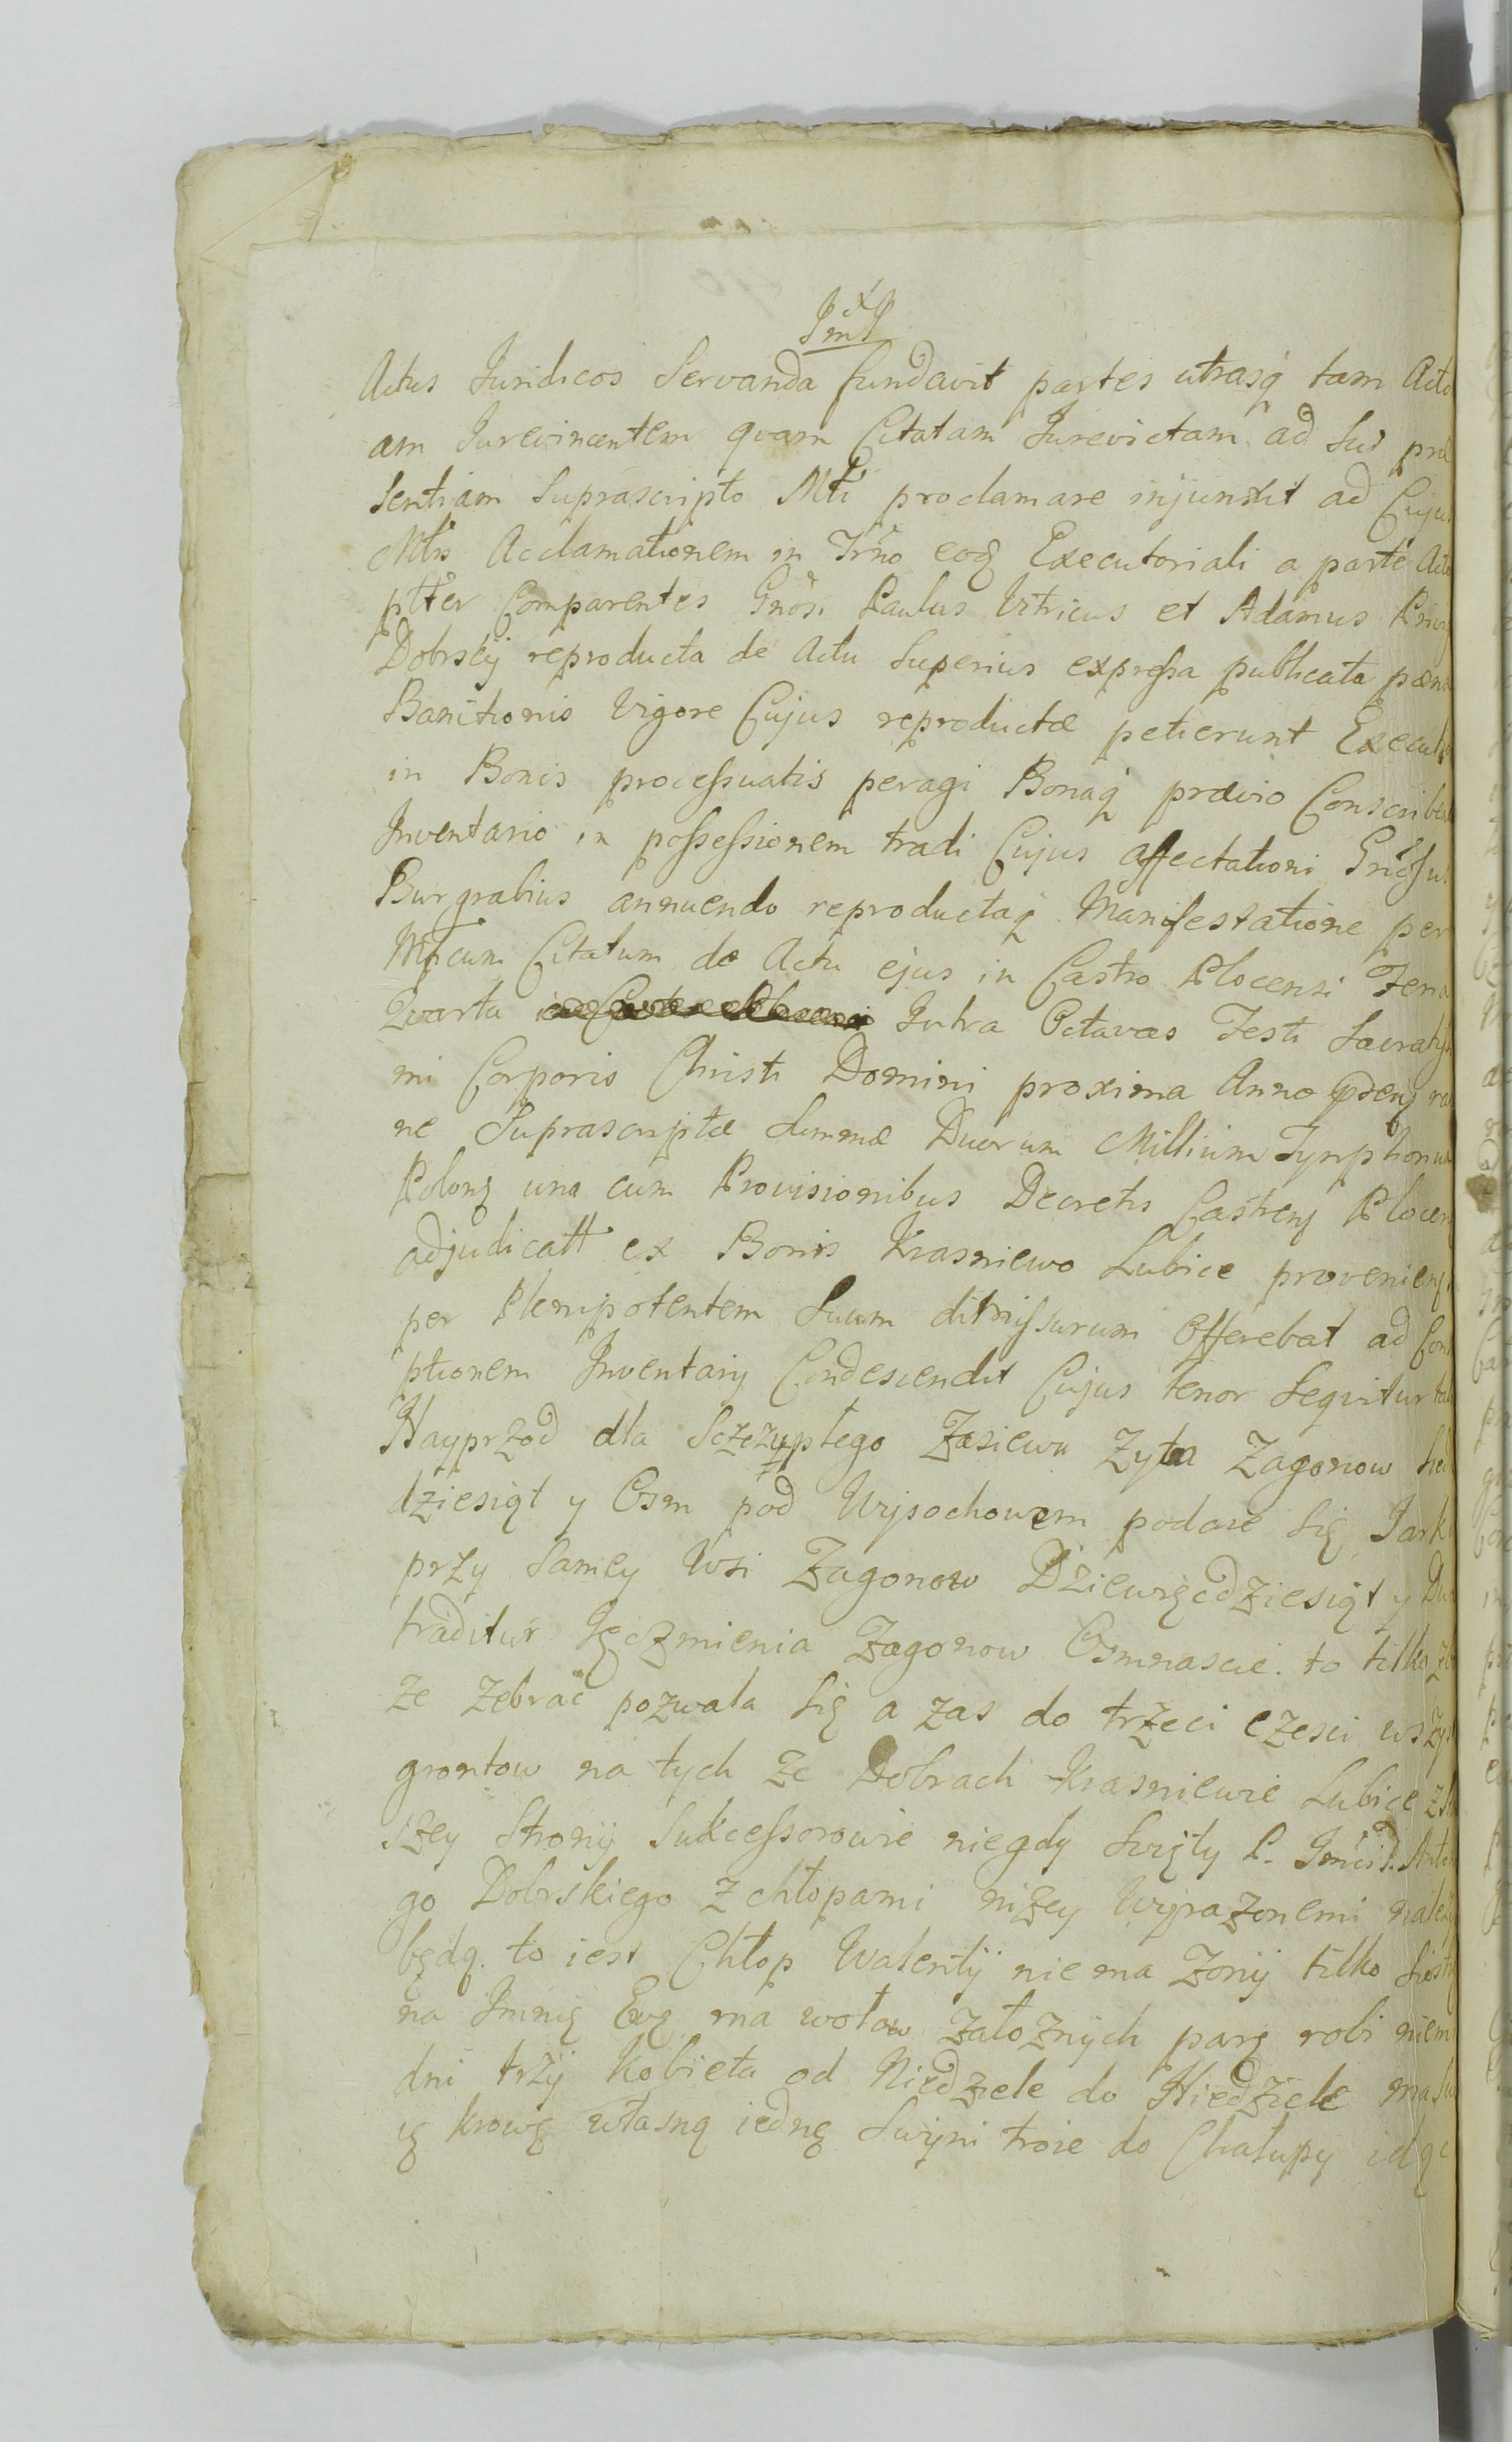 Actus Juridicos Servanda fundavit partes utrasq tam Acto
am Jurevincentem quam Citatam Jurevictam ad sui præ
sentiam Suprascripto Mtri proclamare injunxit ad Cujus
Mtris Acclamationem in Trno eoq Executoriali a parte Acto
ptter Comparentes Gnosi Paulus Vitricus et Adamus Priv
Dobrscy reproducta de Actu Superius expressa publicata pæna
Banitionis Vigore Cujus reproductæ petierunt Executi
in Bonis processuatis peragi Bonaq prævio Conscriben
Inventario in possessionem tradi Cujus affectationi Gnosus
Burgrabius annuendo reproductaq Manifestatione per
Citatum de Actu ejus in Castro Plocensi Feria
Quarta Intra Octavas Festi Sacratiss
mi Corporis Christi Domini proxima Anno præns ra
ne Suprascriptæ Summæ Duorum Millium Tynphonum
Polon una cum Provisionibus Decretis Castren Plocen
adjudicatt ex Bonis Krasniewo Lubice provenien
per Plenipotentem Suum Offerebat ad Con
ptionem Inventary Condescendit Cujus tenor Sequitur tal
Nayprzod dla Sczczupłego Zasiewu Zyta Zagonow Sie
dziesiąt y Osm pod Wysochowem podaie się Jark
przy Samey Wsi Zagonow Dziewięcdziesiąt y Dwa
traditur Ięczmienia Zagonow Osmnascie to tilko zb
ze zebrac pozwala się a zas do trzeci częsci wszys
grontow na tych ze Dobrach Krasniewie Lubice z
szey Strony Sukcessorowie niegdy Swięty P. Jmci P. Anton
go Dobrskiego z chłopami nizey wyrazonemi nalez
będą. to iest Chłop Walenty nie ma Zony tilko Siostr
na Jmnię Ewę ma wołow załoznych parę robi niem
dni trzy Kobieta od Niedziele do Niedziele ma sw
ię krowę własną iednę Swyni troie do Chałupy idąc